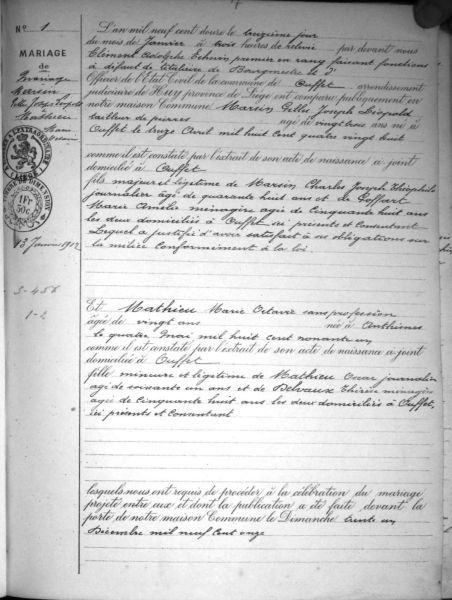 N° 1
MARIAGE
de
Marsin
Gilles Joseph Léopold
&
Mathieu
Marie
Octavie
13 Janvier 1912
S-456
1-2
L'an mil neuf cent douze le treizième jour
du mois de Janvier à trois heures de relevée par devant nous
Clément Adolphe Echevin premier en rang faisant fonctions
à défaut de titulaire de Bourgmestre et d'
Officier de l'Etat Civil de la commune de Ouffet arrondissement
judiciaire de Huy province de Liége ont comparu publiquement en
notre maison Commune Marsin Gilles Joseph Léopold
tailleur de pierres âgé de vingt trois ans né à
Ouffet le treize Avril mil huit cent quatre vingt huit
comme il est constaté par l'extrait de son acte de naissance ci joint
domicilié à Ouffet
fils majeur et légitime de Marsin Charles Joseph Théophile
journalier âgé de quarante huit ans et de
Marie Amélie ménagère âgée de Cinquante huit ans
les deux domiciliés à Ouffet, ici présents et Consentant
Lequel a justifié d'avoir satisfait à ses obligations sur
la milice Conformément à la loi.
Et Mathieu Marie Octavie sans profession
âgée de vingt ans née à Anthisnes
le quatre Mai mil huit cent nonante un
comme il est constaté par l'extrait de son acte de naissance ci joint
domiciliée à Ouffet
fille mineure et légitime de Mathieu Oscar journalier
âgé de soixante un ans et de Delvaux Thérèse ménagère
âgée de Cinquante huit ans les deux domiciliés à Ouffet,
ici présents et Consentant
lesquels nous ont requis de procéder à la célébration du mariage
projeté entre eux et dont la publication a été faite, devant la
porte de notre maison Commune le Dimanche trente un
Décembre mil neuf Cent onze